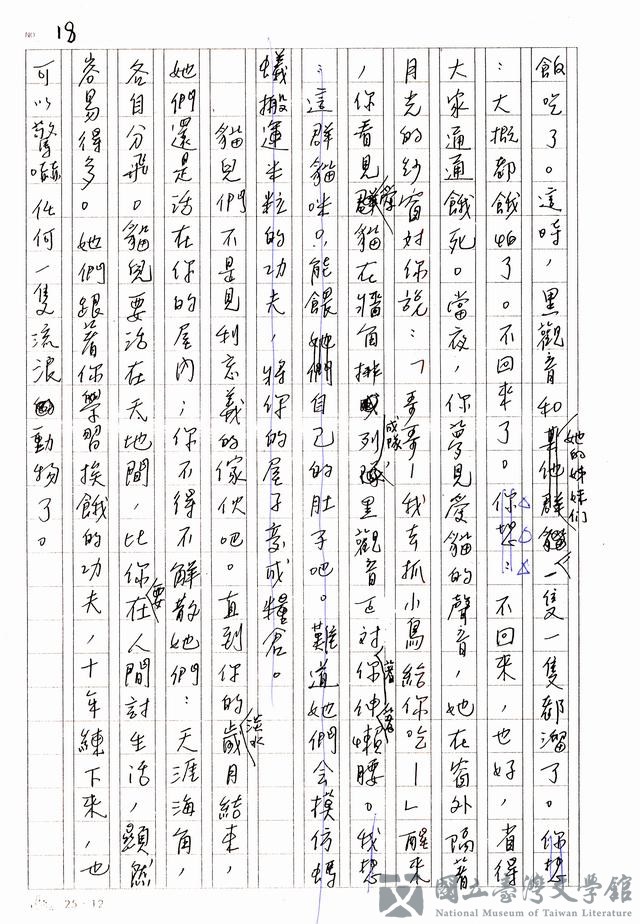 NO 18
飯吃了。這時，黑觀音和她的姊妹们一隻一隻都溜了。你想
：大概都餓怕了。不回來了。你想：不回來，也好，省得
大家通通餓死。當夜，你夢見愛貓的聲音，她在窗外隔著
月光的紗窗對你說：「哥哥！我去抓小鳥給你吃！」醒來
，你看見群貓在牆角排成列成隊黑觀音正對著你伸著懶腰。我想
：這群貓咪只能餵她們自己的肚子吧。難道她們会摸仿螞
蟻搬運米粒的功夫，將你的屋子变成糧倉。
貓兒們不是見利忘義的傢伙吧。直到你的淡水歲月結束，
她們還是活在你的屋內；你不得不解散她們：天涯海角，
各自分飛。貓兒要活在天地間，比你要在人間討生活，顯然
容易得多。她們跟著你學習挨餓的功夫，十年練下來，也
可以驚嚇任何一隻流浪動物了。
25×12
國立臺灣文學館
National Museum of Taiwan Literature